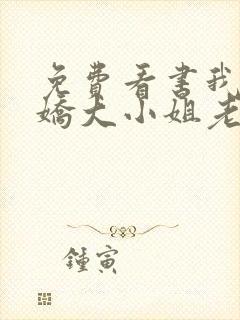 免費看書我
嬌大小姐老
鍾寅